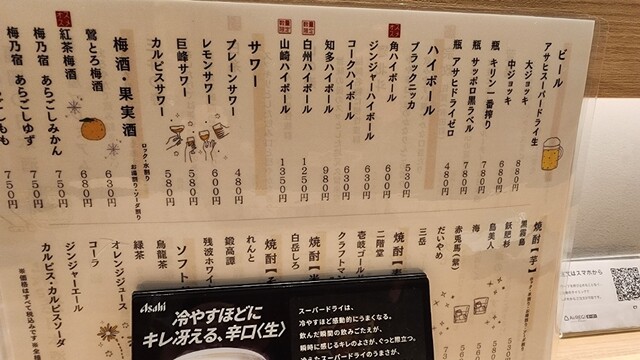 ビール
アサヒスーパードライ生
大ジョッキ 880円
中ジョッキ 680円
瓶 キリン一番搾り 780円
瓶 サッポロ黒ラベル 780円
瓶 アサヒドライゼロ 480円
ハイボール
ブラックニッカ 530円
角ハイボール 600円
ジンジャーハイボール 630円
コークハイボール 630円
知多ハイボール 980円
数量限定
白州ハイボール 1250円
数量限定
山崎ハイボール 1350円
サワー
プレーンサワー 480円
レモンサワー 600円
巨峰サワー 580円
カルピスサワー 580円
梅酒・果実酒
ロック・水割り
お湯割り・ソーダ割り
鶯とろ梅酒 630円
紅茶梅酒 680円
梅乃宿 あらごしみかん 750円
梅乃宿 あらごしゆず 750円
750円
焼酎【芋】
黒霧島
飫肥杉
島美人
海
赤兎馬(紫)
だいやめ
三岳
焼酎【麦
二階堂
壱岐ゴール
クラフトマ
焼酎【米
白岳しろ
焼酎【そ
れんと
鍛高譚
残波ホワイ
ソフト
烏龍茶
緑茶
オレンジジュース
コーラ
ジンジャーエール
カルピス・カルピスソーダ
※価格はすべて税込みです
Asahi
冷やすほどに
キレ冴える、辛口〈生〉
スーパードライは、
冷やすほど感動的にうまくなる。
飲んだ瞬間の飲みごたえが、
瞬時に感じるキレのよさが、ぐっと際立つ。
冷えたスーパードライのうまさが、
文はスマホから